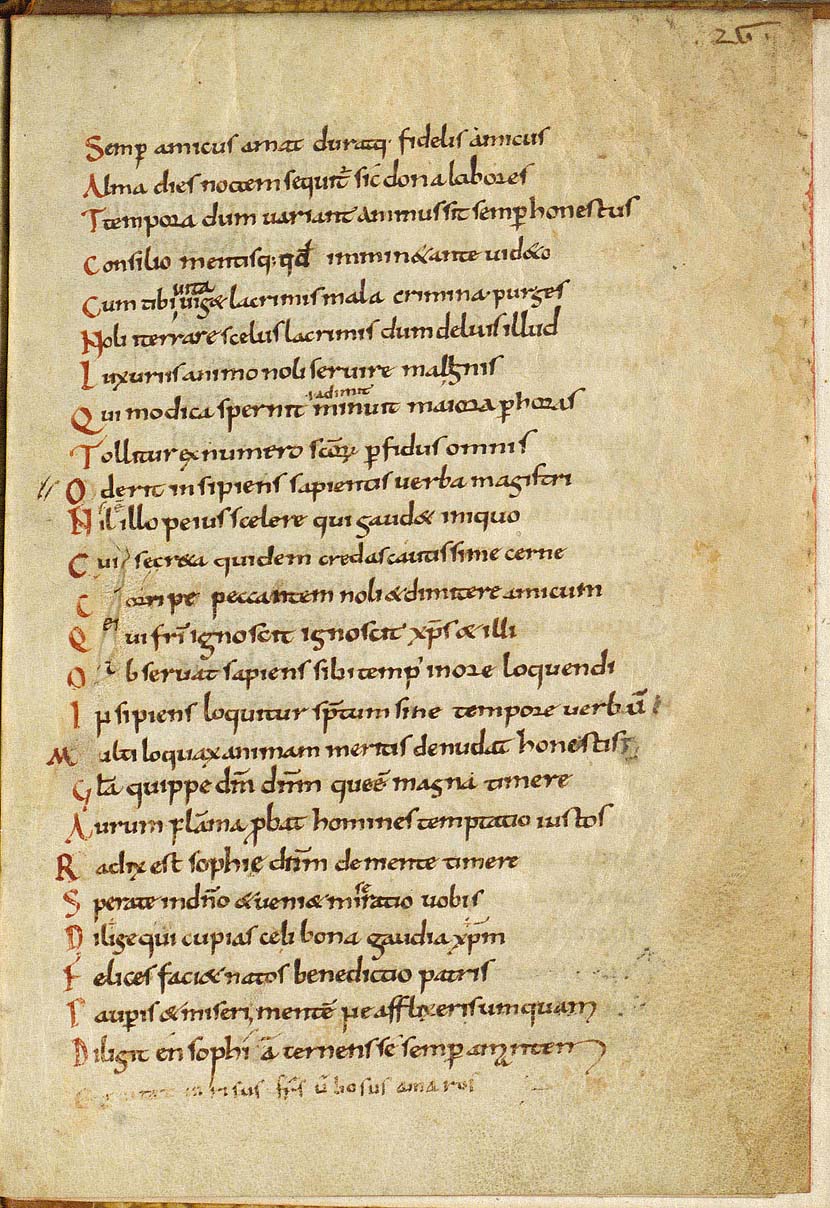 Semp amicus amat duratq· fidelis amicus
Alma dies noctem sequit sic dona labores
Ttempora dum uariant animus sit semp honestus
Consilio mentisq; qd imminet ante uideto
uita
Cum tibi uiget lacrimis mala crimina purges
Noli iterrare scelus lacrimis dum deluis illud
Luxuriis animo noli seruire malignis
Qui modica spernit minuit maiora p horas
Tollitur ex numero scōr pfidus omnis
Oderit insipiens sapientis uerba magistri
Nil illo peius scelere qui gaudet iniquo
Cui secreta quidem credas cautissime cerne
Corripe peccantem noli et dimittere amicum
Qui fri ignoscit ignoscit xps et illi
Obseruat sapiens sibi temp in ore loquendi
Insipiens loquitur sptum sine tempore uerbū
Multi loquax animam meritis denudat honestis
Gla quippe dm dnm magna timere
Aurum flama pbat homines temptatio iustos
Radix est sophie dnm de mente timere
Sperate in dno et ueniet miseratio uobis
Dilige qui cupias celi bona gaudia xpm
Felices faciet natos benedictio patris
Paupis et miseri mente ne afflixeris umquam
Diligit en sophia
amaros